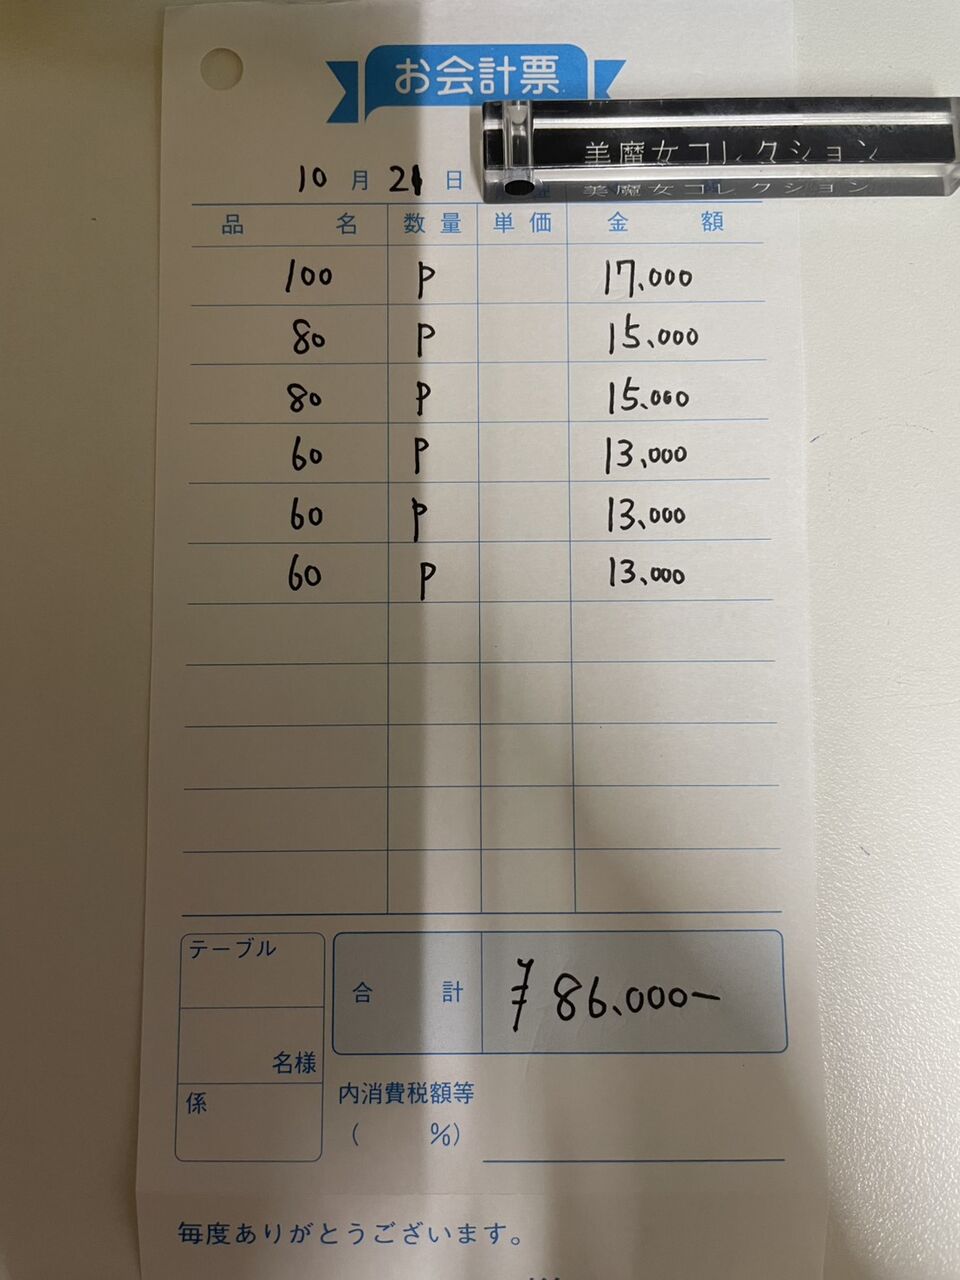 お会計票
美魔女コレクション
美魔女コレクション
10 月 21 日
品名 数量 単価 金額
100 P 17.000
80 P 15.000
80 P 15.000
60 P 13.000
60 P 13.000
60 P 13.000
テーブル
合計 ¥86.000-
名様
係
内消費税額等
( %)
毎度ありがとうございます。